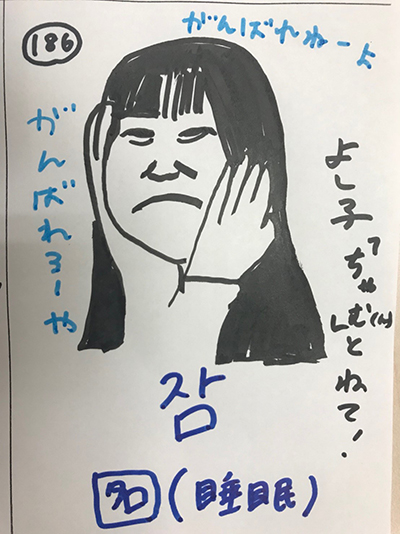 186
がんばれねーよ
がんばれろーや
よし子「ちゃむ(ん)」とねて!
잠
名(睡眠)